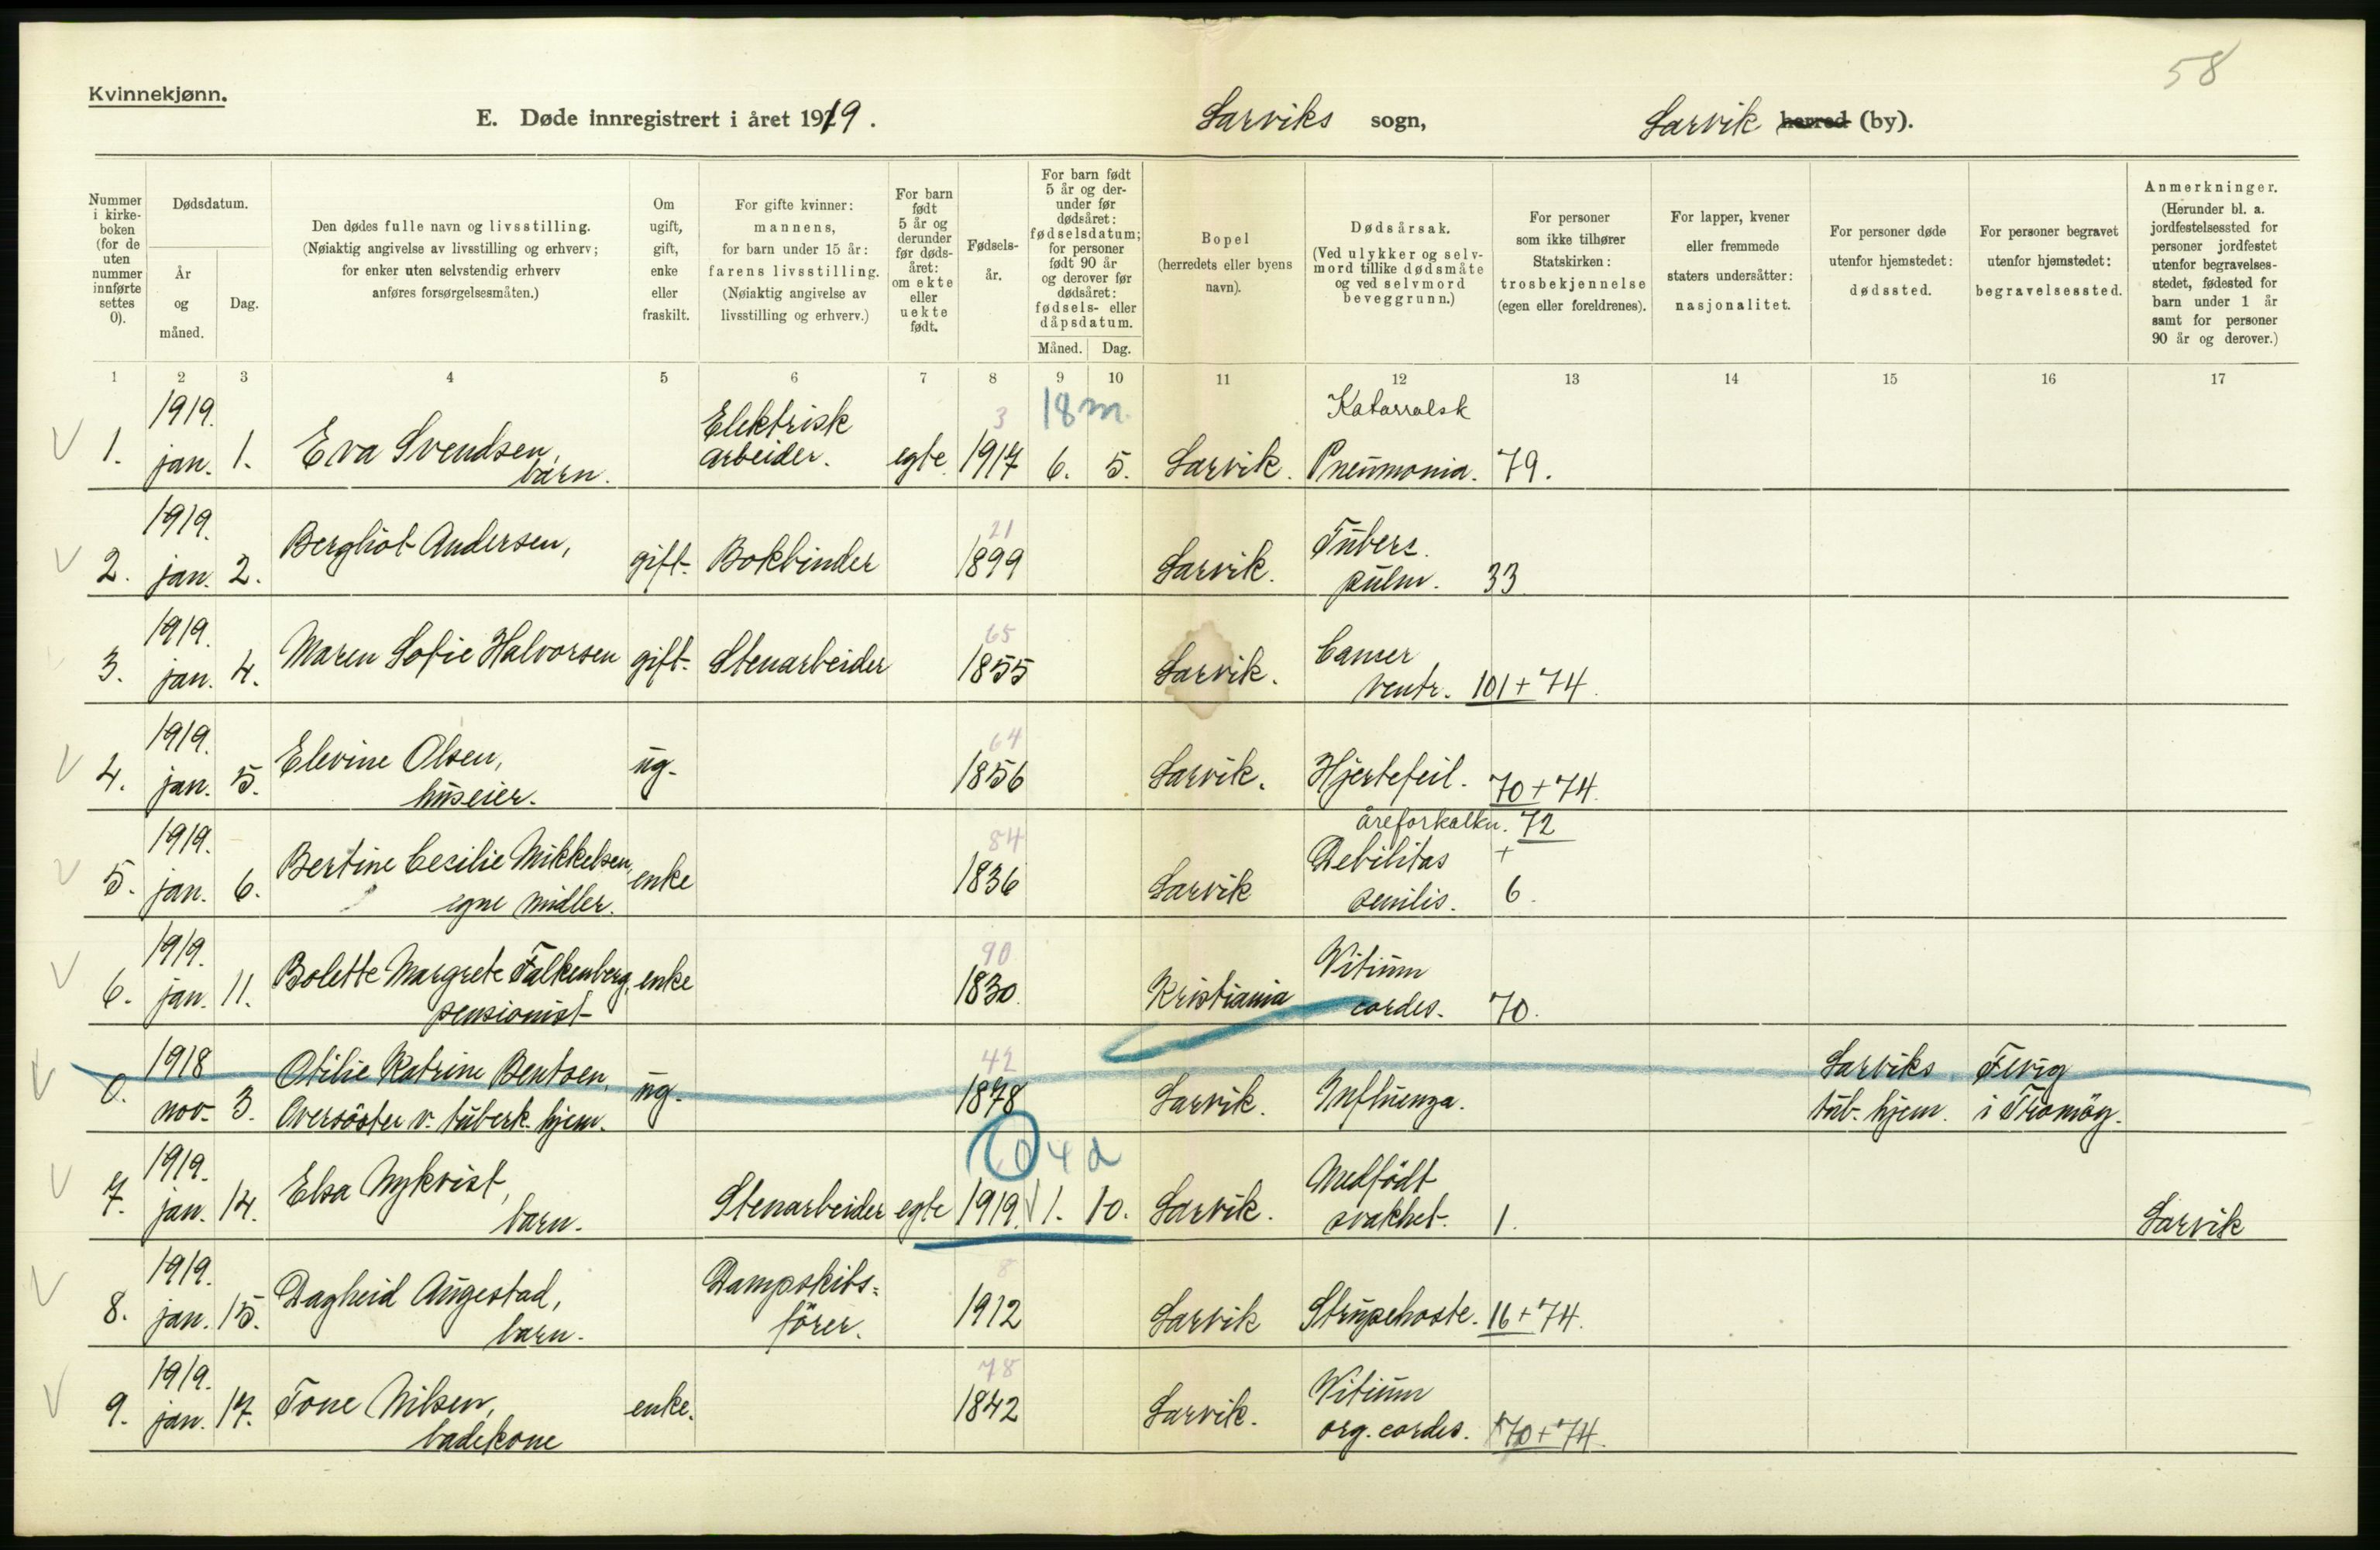 58
Kvinnekjønn.
E. Døde innregistrert i året 1919.
Larviks sogn,
Larvik herred (by).
Nummer i kirkeboken (for de uten nummer innførte settes 0).
Dødsdatum.
År og måned.
Dag.
Den dødes fulle navn og livsstilling.
(Nøiaktig angivelse av livsstilling og erhverv;
for enker uten selvstendig erhverv
anføres forsørgelsesmåten.)
Om ugift, gift, enke eller fraskilt.
For gifte kvinner:
mannens,
for barn under 15 år:
farens livsstilling.
(Nøiaktig angivelse av
livsstilling og erhverv.)
For barn født 5 år og derunder før dødsåret: om ekte eller uekte født.
Fødselsår.
For barn født 5 år og derunder før dødsåret: fødselsdatum; for personer født 90 år og derover før dødsåret: fødsels- eller dåpsdatum.
Måned. Dag.
Bopel
(herredets eller byens
navn).
Dødsårsak.
(Ved ulykker og selvmord tillike dødsmåte og ved selvmord beveggrunn.)
For personer
som ikke tilhører
Statskirken:
trosbekjennelse
(egen eller foreldrenes).
For lapper, kvener
eller fremmede
staters undersåtter:
nasjonalitet.
For personer døde
utenfor hjemstedet:
dødssted.
For personer begravet
utenfor hjemstedet:
begravelsessted.
Anmerkninger.
(Herunder bl. a.
jordfestelsessted for
personer jordfestet
utenfor begravelses-
stedet, fødested for
barn under 1 år
samt for personer
90 år og derover.)
1 2 3 4 5 6 7 8 9 10 11 12 13 14 15 16 17
1919. Elektrisk 3 18 m. Katarralsk
V 1. jan. 1. Eva Svendsen, barn. arbeider. egte 1917 6. 5. Larvik. Pneumonia. 79.
1919. 21 Tuberc.
V 2. jan. 2. Bergliot Andersen, gift. Bokbinder 1899 Larvik. pulm. 33
1919. 65 Cancer
3. jan. 4. Maren Sofie Halvorsen gift. Stenarbeider 1855 Larvik. ventr. 101 + 74.
1919. 64
V 4. jan. 5. Elevine Olsen, huseier. ug. 1856 Larvik. Hjertefeil. 70 + 74.
1919. 84 åreforkalkn. 72
V 5. jan. 6. Bertine Cecilie Mikkelsen, enke 1836 Larvik Debilitas +
egne midler. senilis. 6.
1919. 90 Vitium
V 6. jan. 11. Bolette Margrete Falkenberg, enke 1830. Kristiania cordes. 70.
pensionist
1918 Otilie Katrine Bentsen, ug. 42 Larviks Fevig
V 0. nov. 3. Oversöster v. tuberk. hjem. 1878 Larvik. Influenza. tub. hjem. i Tromög.
1919. 0 4 d Medfödt
V 7. jan. 14. Elsa Nykvist, barn. Stenarbeider egte 1919. 1. 10. Larvik. svakhet. 1. Larvik
1919. Dampskibs= 8
V 8. jan. 15. Dagheid Augestad, barn. förer. 1912 Larvik Strupehoste. 16 + 74.
1919. 78 Vitium
V 9. jan. 17. Tone Nilsen, enke. 1842 Larvik. org. cordes. 70 + 74.
badekone